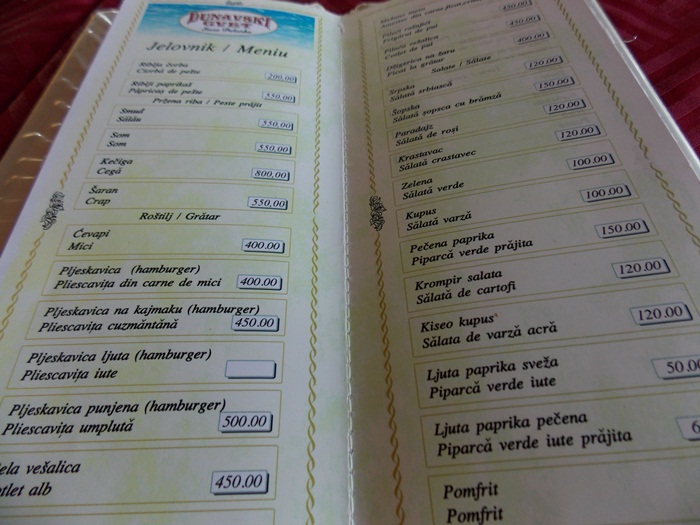 DUNAVSKI
CVET
Jelovnik / Meniu
Riblja čorba
Ciorbă de pește
200,00
Riblji paprikaš
Păpricaș de pește
550,00
Pržena riba / Pește prăjit
Smuđ
Sălău
550,00
Som
Som
550,00
Kečiga
Cegă
800,00
Šaran
Crap
550,00
Roštilj / Grătar
Ćevapi
Mici
400.00
Pljeskavica (hamburger)
Pliescavița din carne de mici
400.00
Pljeskavica na kajmaku (hamburger)
Pliescavița cuzmăntănă
450.00
Pljeskavica ljuta (hamburger)
Pliescavița iute
Pljeskavica punjena (hamburger)
Pliescavița umplută
500.00
ela vešalica
otlet alb
450.00
450.00
450.00
400.00
Džigerica na žaru
Ficat la grătar
Salate / Sălate
120.00
Srpska
Sălată srbiască
150.00
Šopska
Sălată șopsca cu brămză
120.00
Paradajz
Sălată de roși
120.00
Krastavac
Sălată crastavec
100.00
Zelena
Sălată verde
100.00
Kupus
Sălată varză
150.00
Pečena paprika
Piparcă verde prăjita
120.00
Krompir salata
Sălată de cartofi
120.00
Kiseo kupus
Sălata de varză acră
Ljuta paprika sveža
Piparcă verde iute
50.0
Ljuta paprika pečena
Piparcă verde iute prăjita
6
Pomfrit
Pomfrit